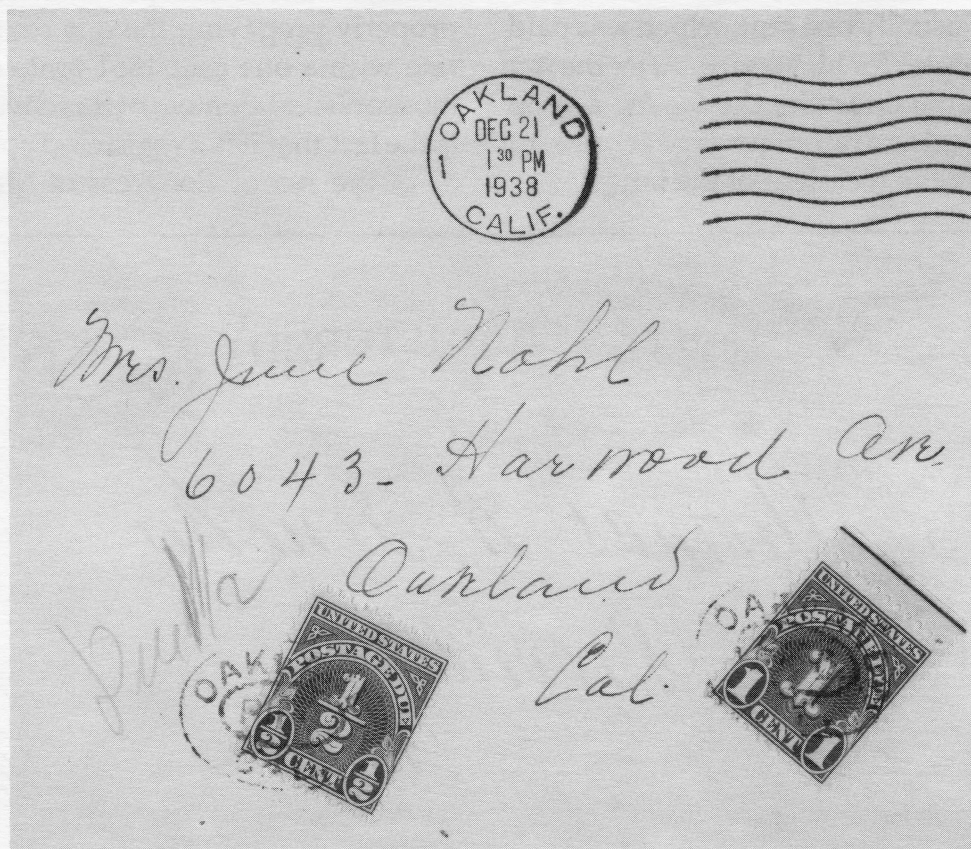 OAKLAND
DEC 21
1 1 30 PM
1938
CALIF.
Mrs. June Nohl
6043- Harwood Ave.
Oakland
Cal.
OAK
UNITED STATES
POSTAGE DUE
1/2
1/2 CENT 1/2
OA
UNITED STATES
POSTAGE DUE
1
1 CENT 1